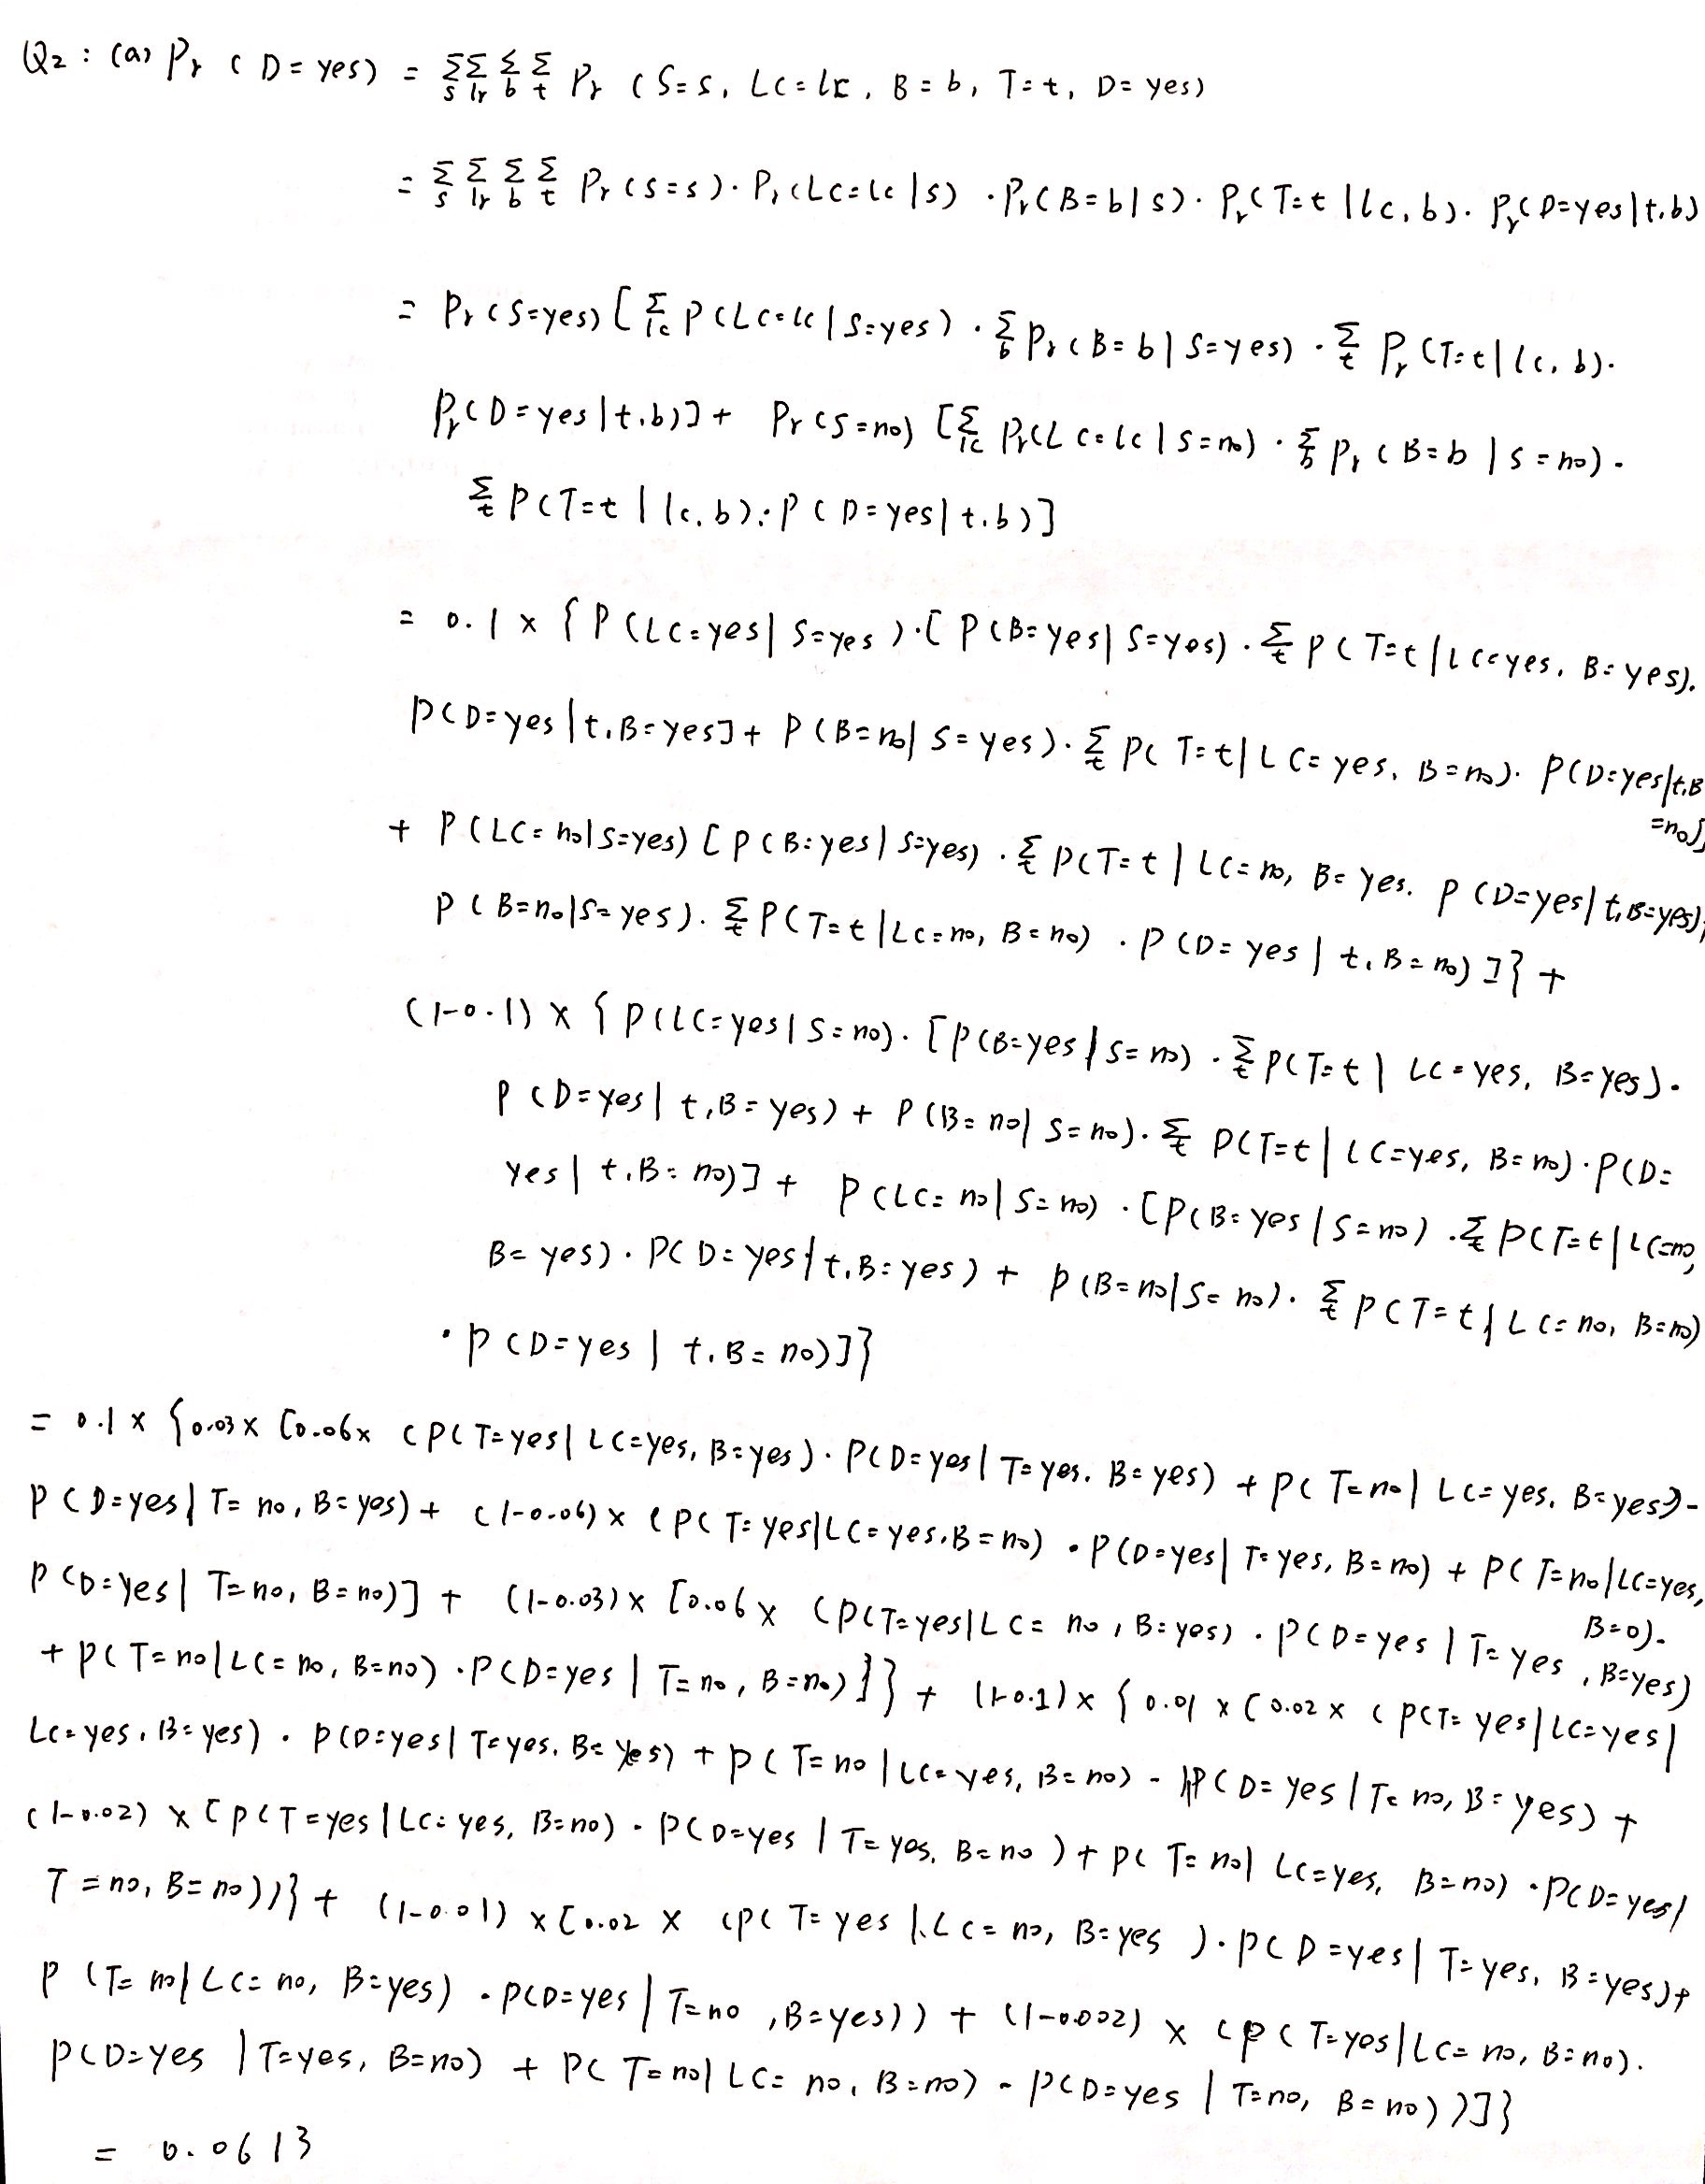 Q2 : (a) Pr ( D = yes) = Σs Σlr Σb Σt Pr ( S=s, LC=lc, B=b, T=t, D=yes)
= Σs Σlr Σb Σt Pr(S=s) · Pr(LC=lc|s) · Pr(B=b|s) · Pr(T=t|lc,b) · Pr(D=yes|t,b)
= Pr(S=yes) [Σlc P(LC=lc|S=yes) · Σb Pr(B=b|S=yes) · Σt Pr(T=t|lc,b) ·
Pr(D=yes|t,b)] + Pr(S=no) [Σlc Pr(LC=lc|S=no) · Σb Pr(B=b|S=no) ·
Σt P(T=t|lc,b) · P(D=yes|t,b)]
= 0.1 x {P(LC=yes|S=yes) · [P(B=yes|S=yes) · Σt P(T=t|LC=yes, B=yes).
P(D=yes|t,B=yes] + P(B=no|S=yes) · Σt P(T=t|LC=yes, B=no) · P(D=yes|t,B
=no]
+ P(LC=no|S=yes) [P(B=yes|S=yes) · Σt P(T=t|LC=no, B=yes. P(D=yes|t,B=yes)+
P(B=no|S=yes) · Σt P(T=t|LC=no, B=no) · P(D=yes|t,B=no)]} +
(1-0.1) x {P(LC=yes|S=no) · [P(B=yes|S=no) · Σt P(T=t|LC=yes, B=yes) ·
P(D=yes|t,B=yes) + P(B=no|S=no) · Σt P(T=t|LC=yes, B=no) · P(D=
yes|t,B=no)] + P(LC=no|S=no) · [P(B=yes|S=no) · Σt P(T=t|LC=no,
B=yes) · P(D=yes|t,B=yes) + P(B=no|S=no) · Σt P(T=t|LC=no, B=no)
· P(D=yes|t,B=no)]}
= 0.1 x {0.03 x [0.06 x (P(T=yes|LC=yes, B=yes) · P(D=yes|T=yes, B=yes) + P(T=no|LC=yes, B=yes) -
P(D=yes|T=no, B=yes) + (1-0.06) x (P(T=yes|LC=yes, B=no) · P(D=yes|T=yes, B=no) + P(T=no|LC=yes,
B=0).
P(D=yes|T=no, B=no)] + (1-0.03) x [0.06 x (P(T=yes|LC=no, B=yes) · P(D=yes|T=yes, B=yes)
+ P(T=no|LC=no, B=no) · P(D=yes|T=no, B=no)]} + (1-0.1) x {0.01 x (0.02 x (P(T=yes|LC=yes|
LC=yes, B=yes) · P(D=yes|T=yes, B=yes) + P(T=no|LC=yes, B=no) - P(D=yes|T=no, B=yes) +
(1-0.02) x [P(T=yes|LC=yes, B=no) · P(D=yes|T=yes, B=no) + P(T=no|LC=yes, B=no) · P(D=yes|
T=no, B=no))} + (1-0.01) x [0.02 x (P(T=yes|LC=no, B=yes) · P(D=yes|T=yes, B=yes)+
P(T=no|LC=no, B=yes) · P(D=yes|T=no, B=yes)) + (1-0.002) x (P(T=yes|LC=no, B=no).
P(D=yes|T=yes, B=no) + P(T=no|LC=no, B=no) - P(D=yes|T=no, B=no))]}
= 0.0613